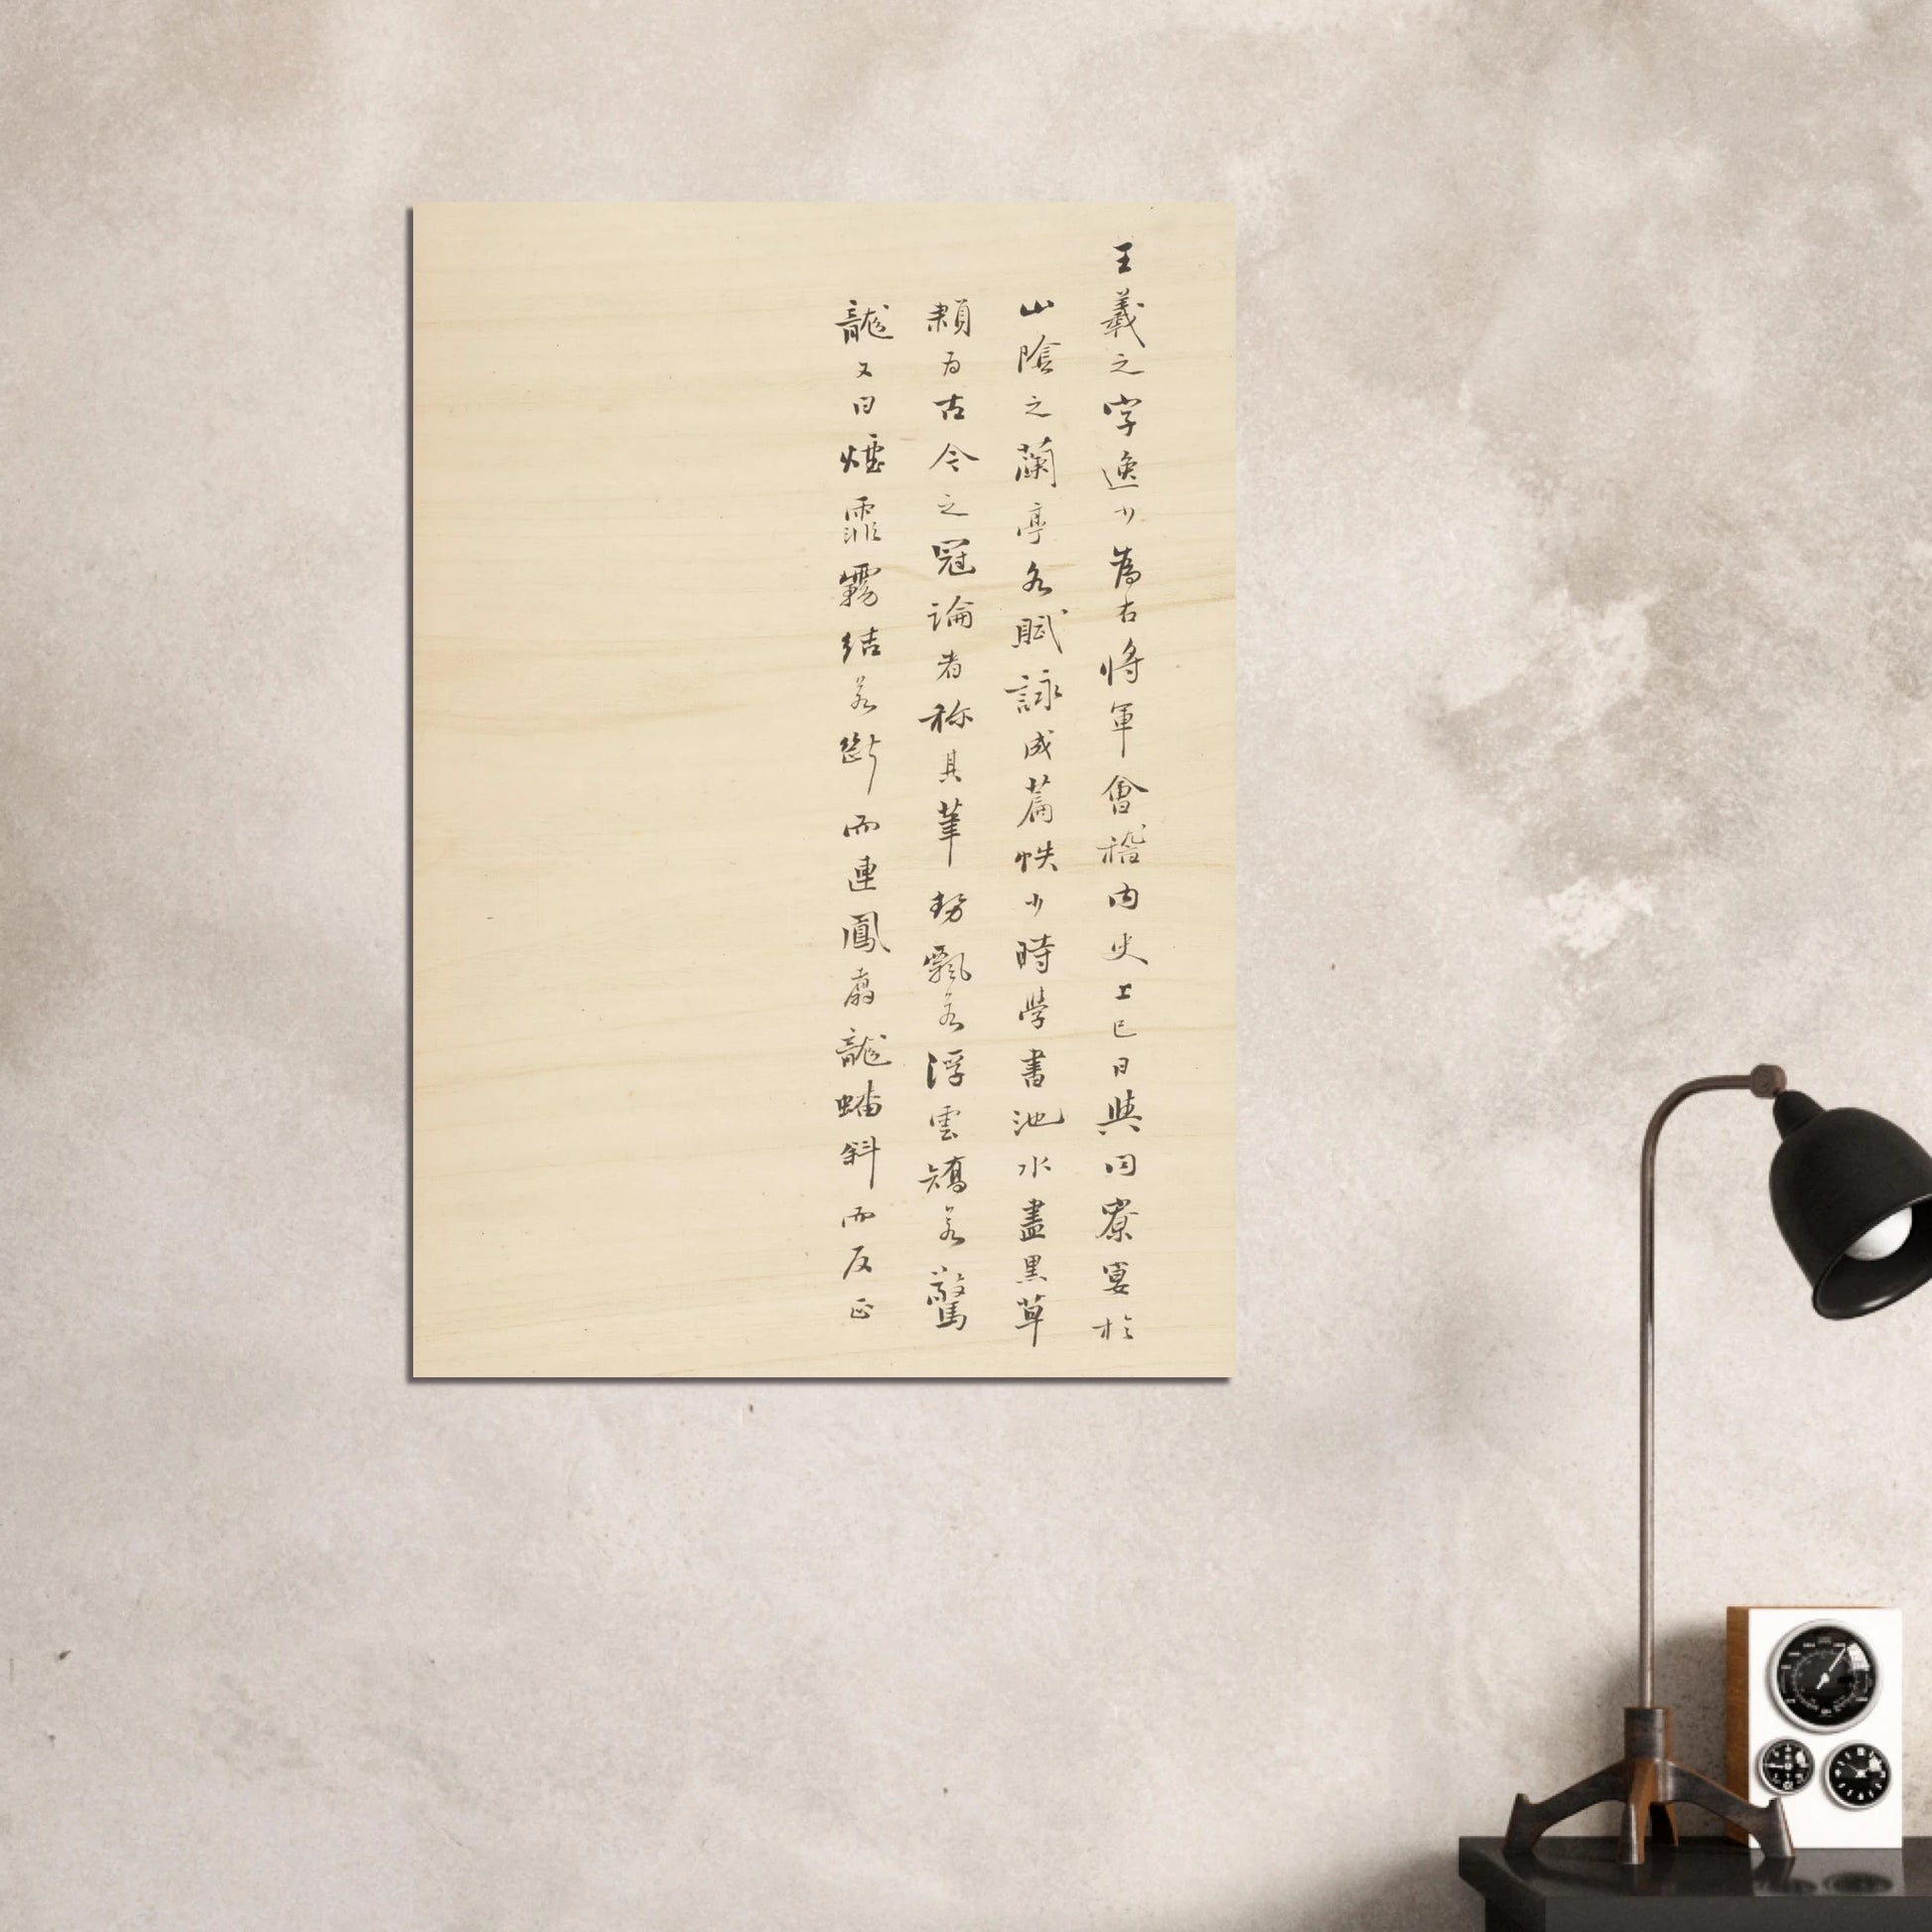 王羲之字逸少為右將軍會稽内史上巳日與同寮宴於
山陰之蘭亭各賦詠成篇帙少時學書池水盡黑草
隷為古今之冠論者称其筆勢飄若浮雲矯若驚
龍又曰煙霏霧結若斷而連鳳翥龍蟠斜而反正